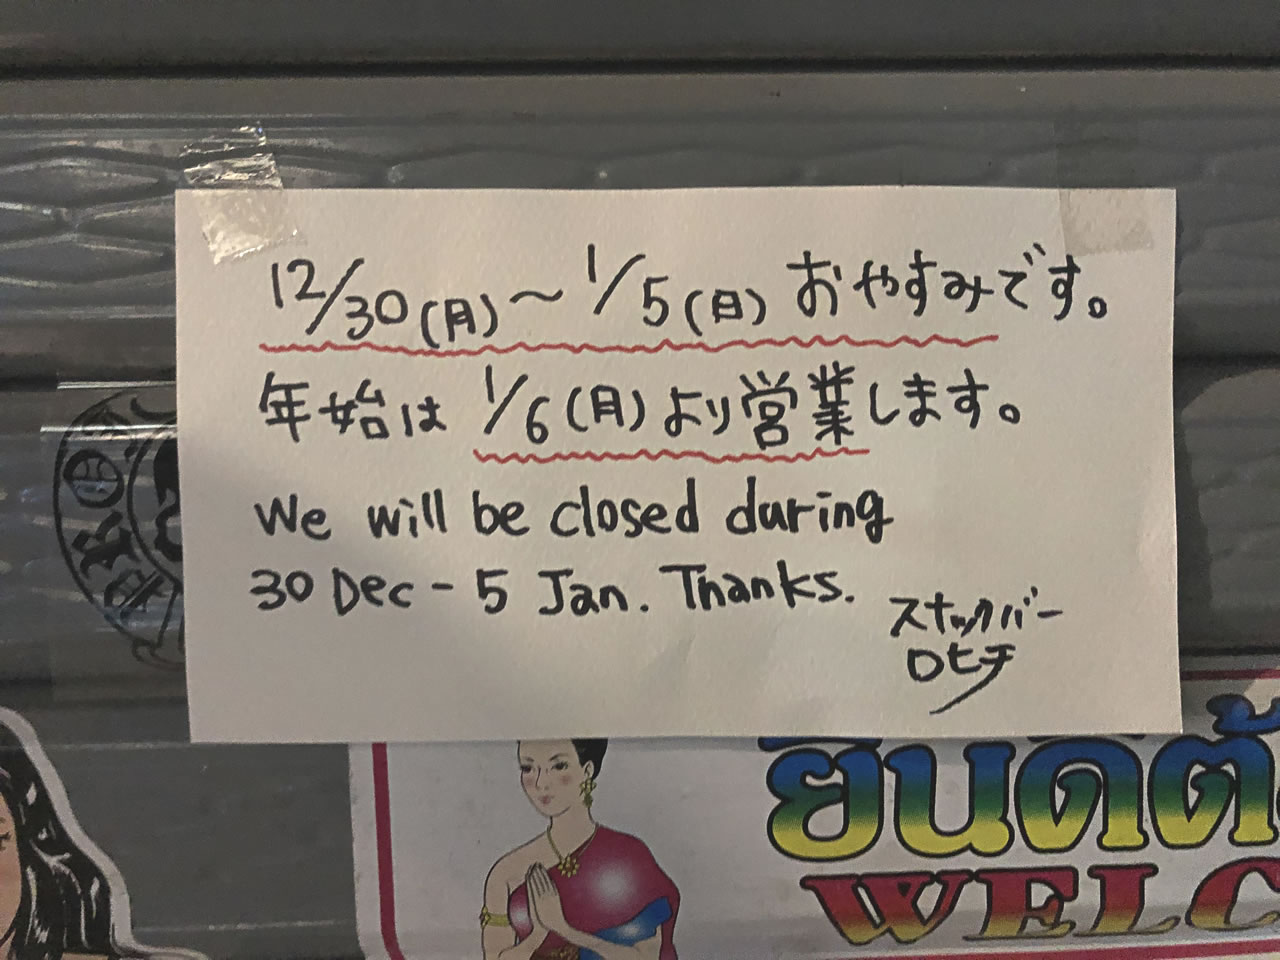 12/30(月)〜1/5(日) おやすみです。
年始は 1/6(月)より営業します。
We will be closed during
30 Dec - 5 Jan. Thanks.
スナックバー
ロヒチ
ยินดีต้
WELC